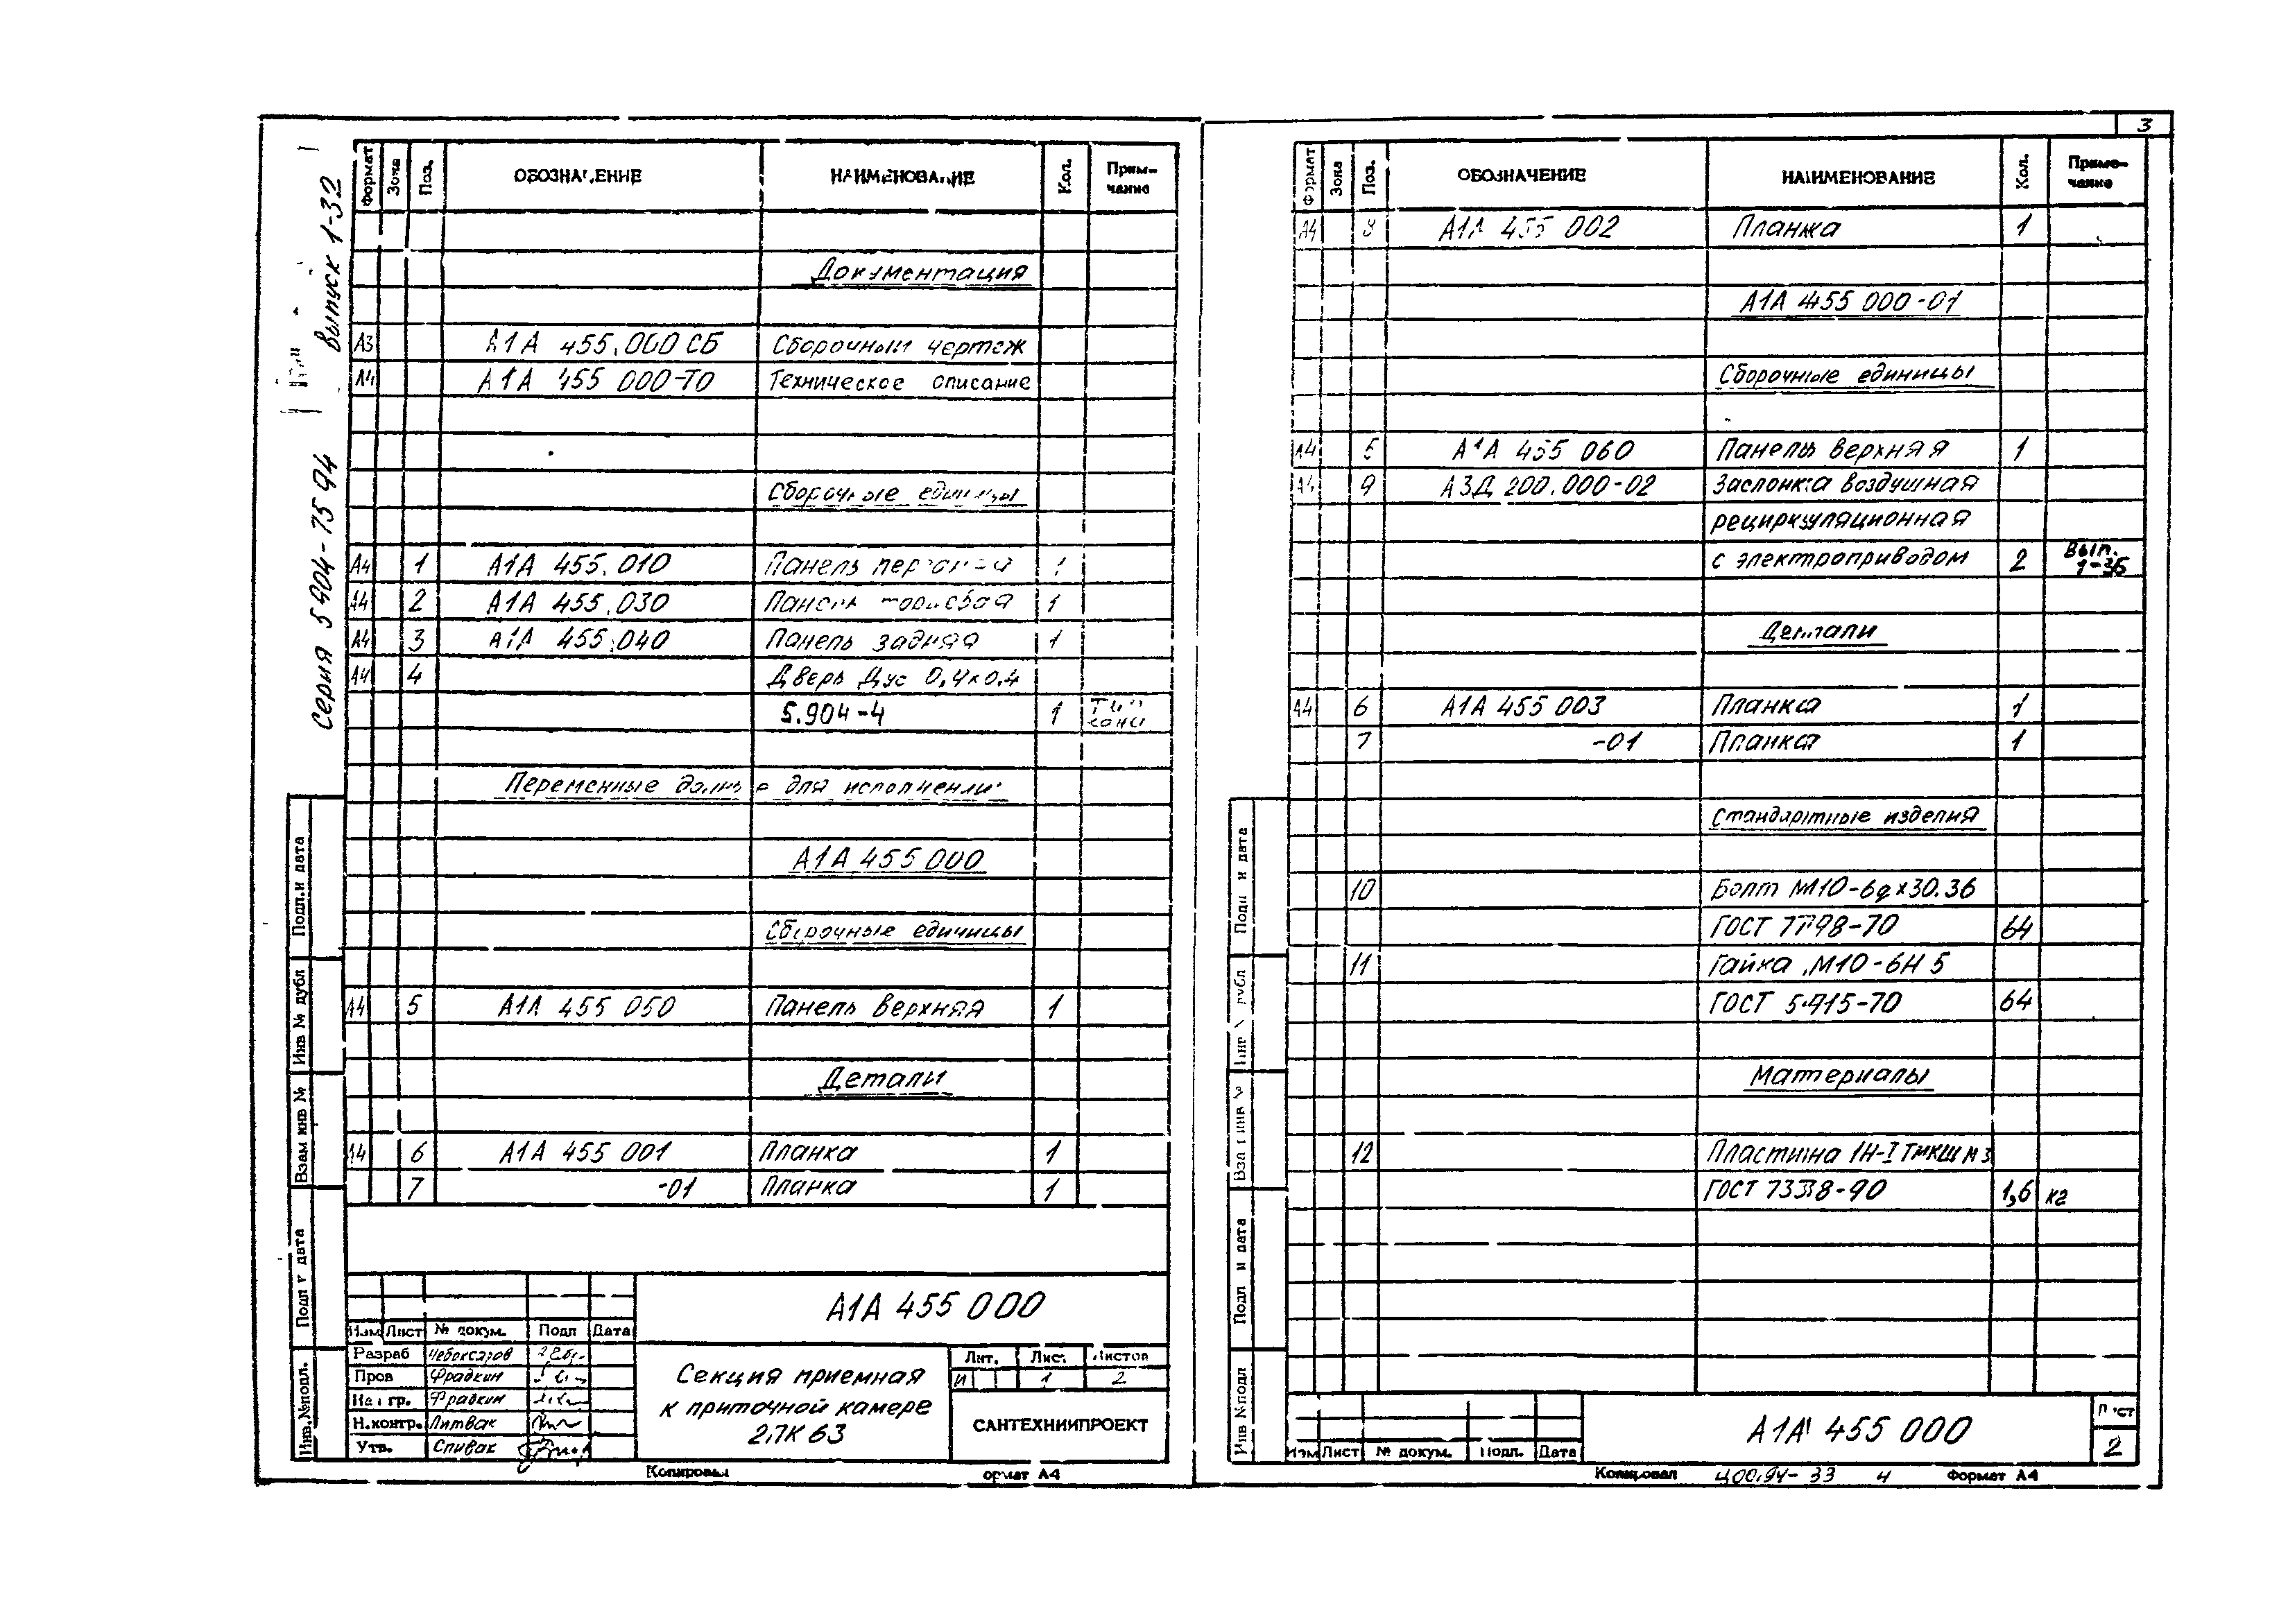 Серия 5.904-75 94 Выпуск 1-32
Формат Зона Поз. ОБОЗНАЧЕНИЕ НАИМЕНОВАНИЕ Кол. Приме-
чание
Документация
А3 А1А 455.000 СБ Сборочный чертеж
А4 А1А 455 000-ТО Техническое описание
Сборочные единицы
А4 1 А1А 455.010 Панель передняя 1
А4 2 А1А 455.030 Панель торцевая 1
А4 3 А1А 455.040 Панель задняя 1
А4 4 Дверь Дус 0,4×0,4
5.904-4 1
Переменные данные для исполнений
А1А 455 000
Сборочные единицы
А4 5 А1А 455 050 Панель верхняя 1
Детали
А4 6 А1А 455 001 Планка 1
7 -01 Планка 1
А1А 455 000
Изм Лист № докум. Подп Дата
Разраб Чебоксаров
Пров Фрадкин
Нач гр. Фрадкин
Н.контр. Литвак
Утв. Спивак
Секция приемная
к приточной камере
2ПК 63
Лит. Лист Листов
И 1 2
САНТЕХНИИПРОЕКТ
Копировал Формат А4
Подп. и дата
Инв № дубл
Взам инв №
Подп и дата
Инв.№подл.
3
Формат Зона Поз. ОБОЗНАЧЕНИЕ НАИМЕНОВАНИЕ Кол. Приме-
чание
А4 8 А1А 455 002 Планка 1
А1А 455 000-01
Сборочные единицы
А4 5 А1А 455 060 Панель верхняя 1
А4 9 А3Д 200.000-02 Заслонка воздушная
рециркуляционная
с электроприводом 2 Вып.
1-36
Детали
А4 6 А1А 455 003 Планка 1
7 -01 Планка 1
Стандартные изделия
10 Болт М10-6g×30.36
ГОСТ 7798-70 64
11 Гайка М10-6Н 5
ГОСТ 5915-70 64
Материалы
12 Пластина 1Н-I ТМКЩ М 3
ГОСТ 7338-90 1,6 кг
А1А 455 000
Лист
2
Изм Лист № докум. Подп. Дата
Копировал Ц00.94-33 4 Формат А4
Подп и дата
Инв № дубл
Взам инв №
Подп и дата
Инв №подл